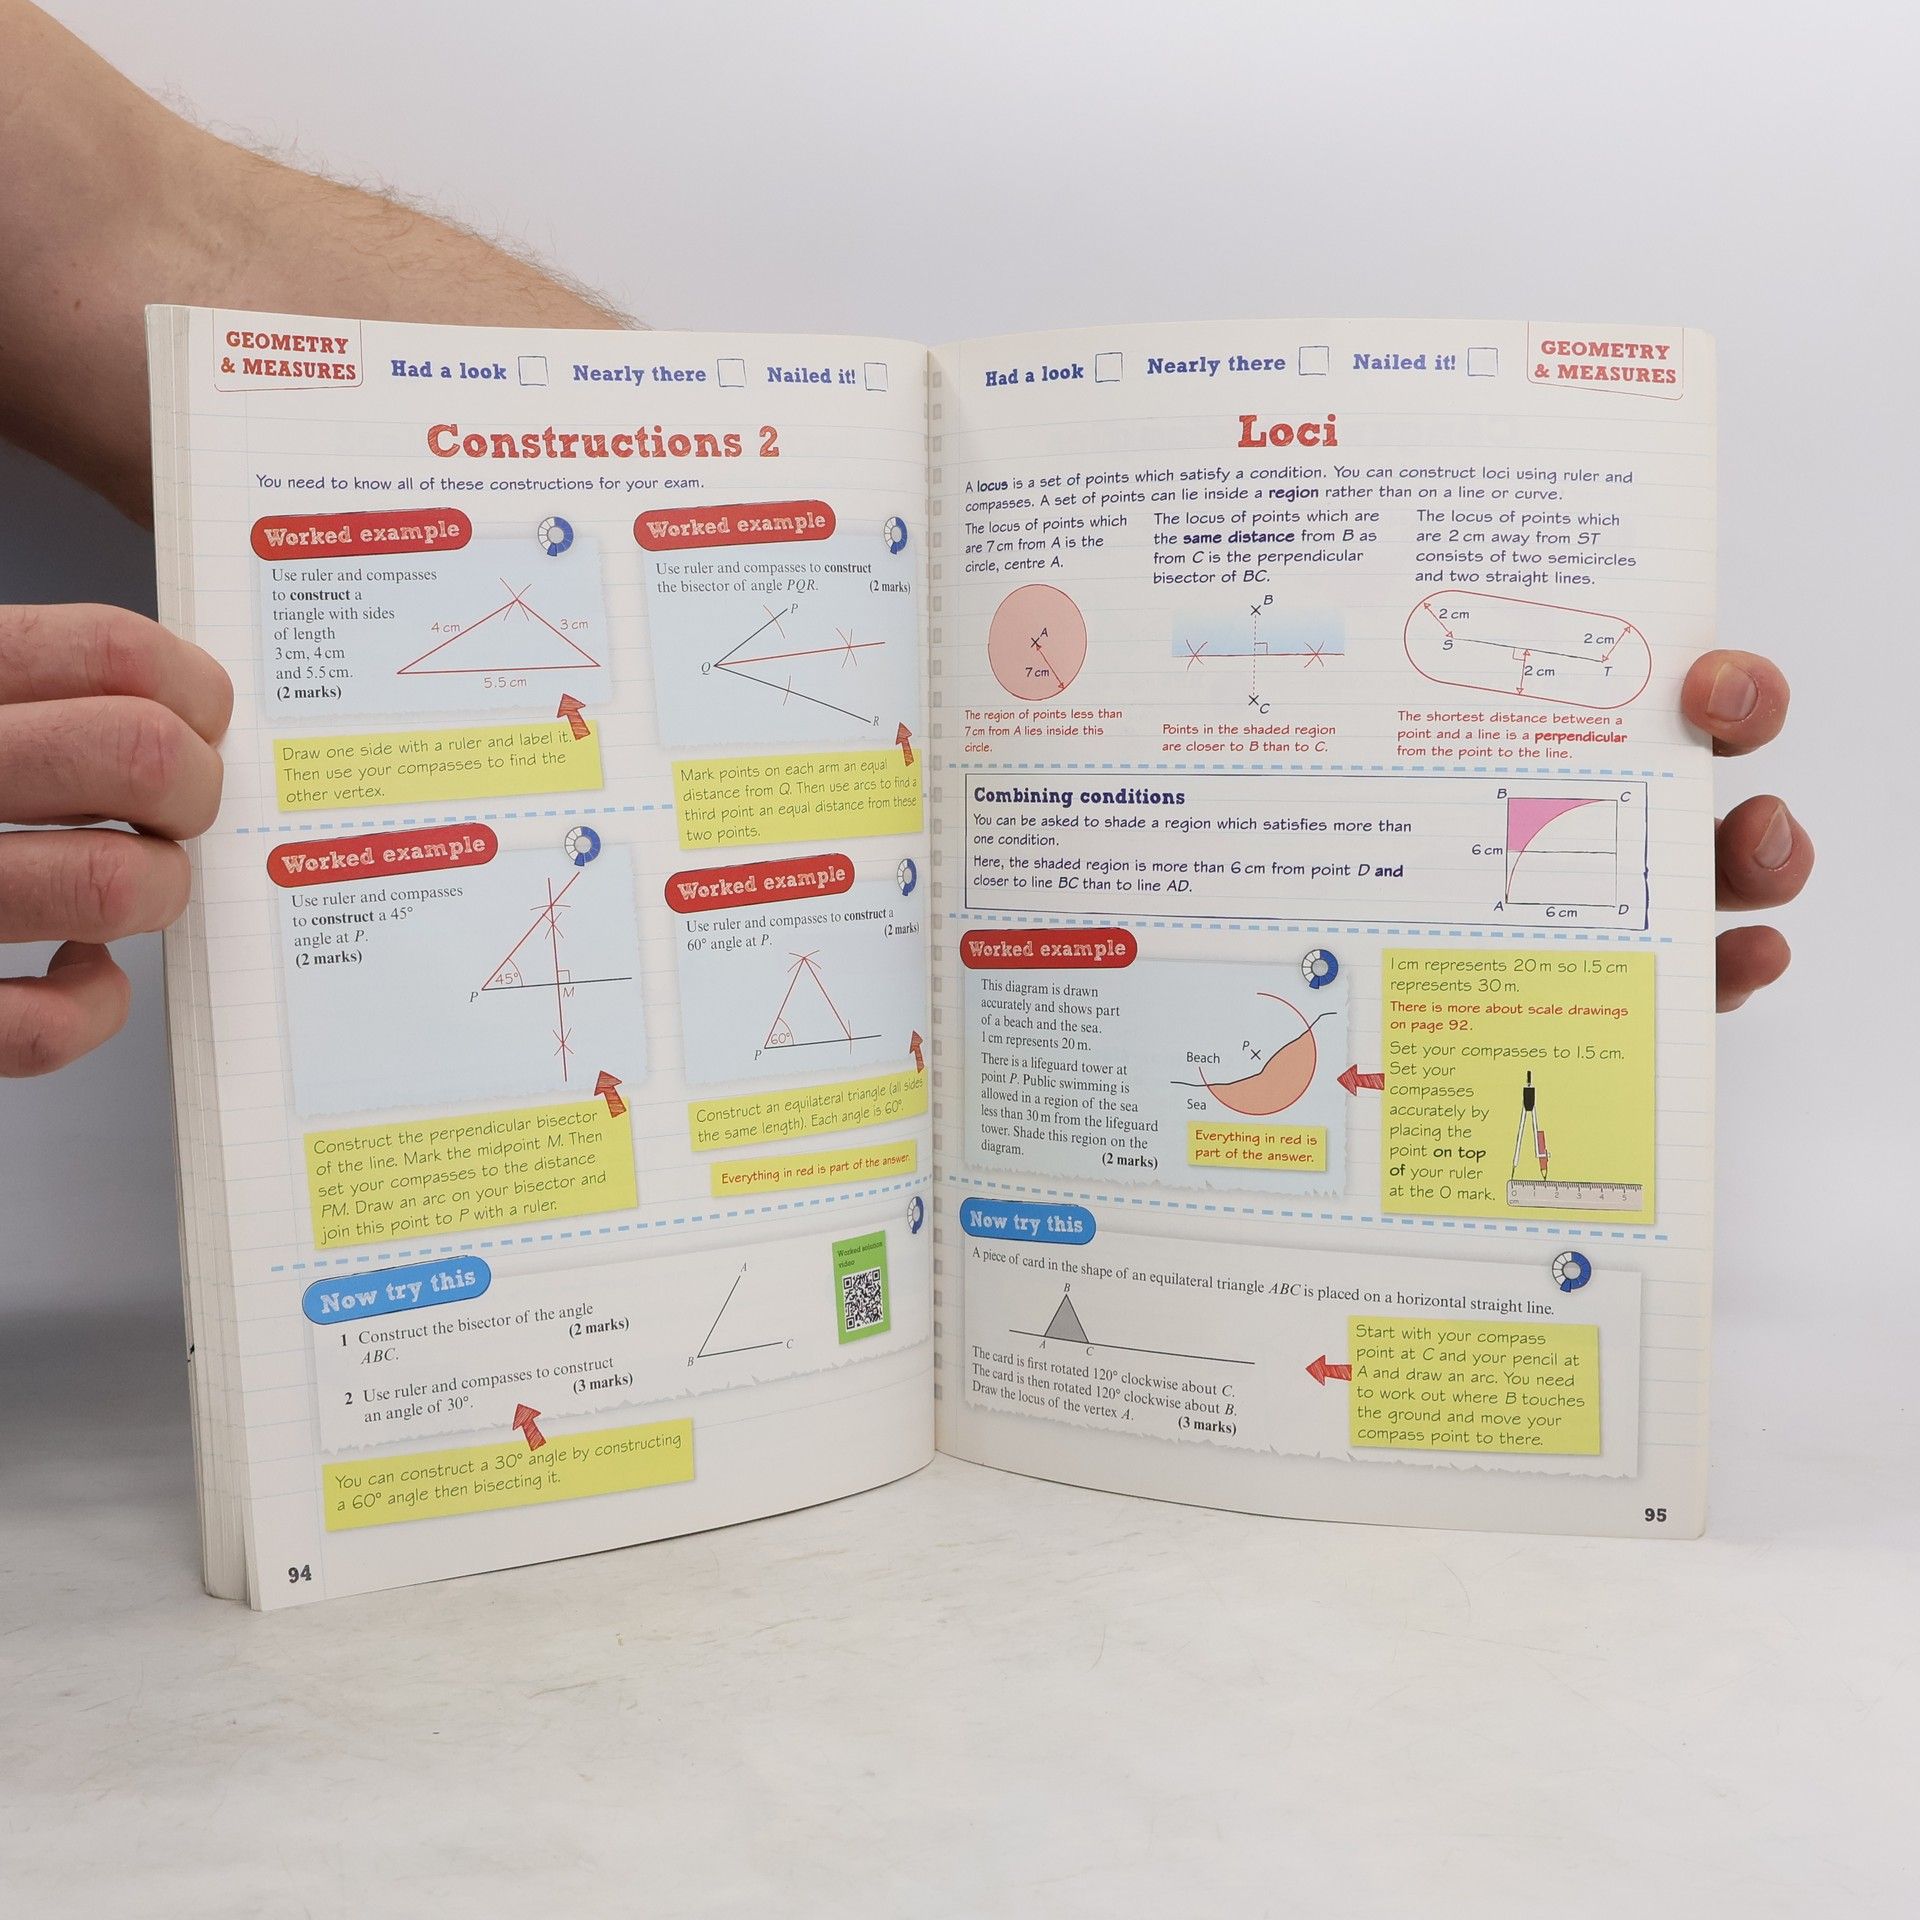 GEOMETRY
& MEASURES
Had a look Nearly there Nailed it!
Constructions 2
You need to know all of these constructions for your exam.
Worked example
Use ruler and compasses
to construct a
triangle with sides
of length
3 cm, 4 cm
and 5.5 cm.
(2 marks)
4 cm
3 cm
5.5 cm
Draw one side with a ruler and label it.
Then use your compasses to find the
other vertex.
Worked example
Use ruler and compasses to construct
the bisector of angle PQR. (2 marks)
P
Q
R
Mark points on each arm an equal
distance from Q. Then use arcs to find a
third point an equal distance from these
two points.
Worked example
Use ruler and compasses
to construct a 45°
angle at P.
(2 marks)
45°
P
M
Construct the perpendicular bisector
of the line. Mark the midpoint M. Then
set your compasses to the distance
PM. Draw an arc on your bisector and
join this point to P with a ruler.
Worked example
Use ruler and compasses to construct a
60° angle at P. (2 marks)
60°
P
Construct an equilateral triangle (all sides
the same length). Each angle is 60°.
Everything in red is part of the answer.
Now try this
1 Construct the bisector of the angle
ABC. (2 marks)
2 Use ruler and compasses to construct
an angle of 30°. (3 marks)
A
B
C
Worked solution
video
You can construct a 30° angle by constructing
a 60° angle then bisecting it.
94
Had a look Nearly there Nailed it!
GEOMETRY
& MEASURES
Loci
A locus is a set of points which satisfy a condition. You can construct loci using ruler and
compasses. A set of points can lie inside a region rather than on a line or curve.
The locus of points which
are 7 cm from A is the
circle, centre A.
A
7 cm
The region of points less than
7 cm from A lies inside this
circle.
The locus of points which are
the same distance from B as
from C is the perpendicular
bisector of BC.
B
C
Points in the shaded region
are closer to B than to C.
The locus of points which
are 2 cm away from ST
consists of two semicircles
and two straight lines.
2 cm
S
2 cm
2 cm
T
The shortest distance between a
point and a line is a perpendicular
from the point to the line.
Combining conditions
You can be asked to shade a region which satisfies more than
one condition.
Here, the shaded region is more than 6 cm from point D and
closer to line BC than to line AD.
B
C
6 cm
A
6 cm
D
Worked example
This diagram is drawn
accurately and shows part
of a beach and the sea.
1 cm represents 20 m.
There is a lifeguard tower at
point P. Public swimming is
allowed in a region of the sea
less than 30 m from the lifeguard
tower. Shade this region on the
diagram. (2 marks)
Beach
P
Sea
Everything in red is
part of the answer.
1 cm represents 20 m so 1.5 cm
represents 30 m.
There is more about scale drawings
on page 92.
Set your compasses to 1.5 cm.
Set your
compasses
accurately by
placing the
point on top
of your ruler
at the 0 mark.
0 1 2 3 4 5
cm
Now try this
A piece of card in the shape of an equilateral triangle ABC is placed on a horizontal straight line.
B
A
C
The card is first rotated 120° clockwise about C.
The card is then rotated 120° clockwise about B.
Draw the locus of the vertex A. (3 marks)
Start with your compass
point at C and your pencil at
A and draw an arc. You need
to work out where B touches
the ground and move your
compass point to there.
95